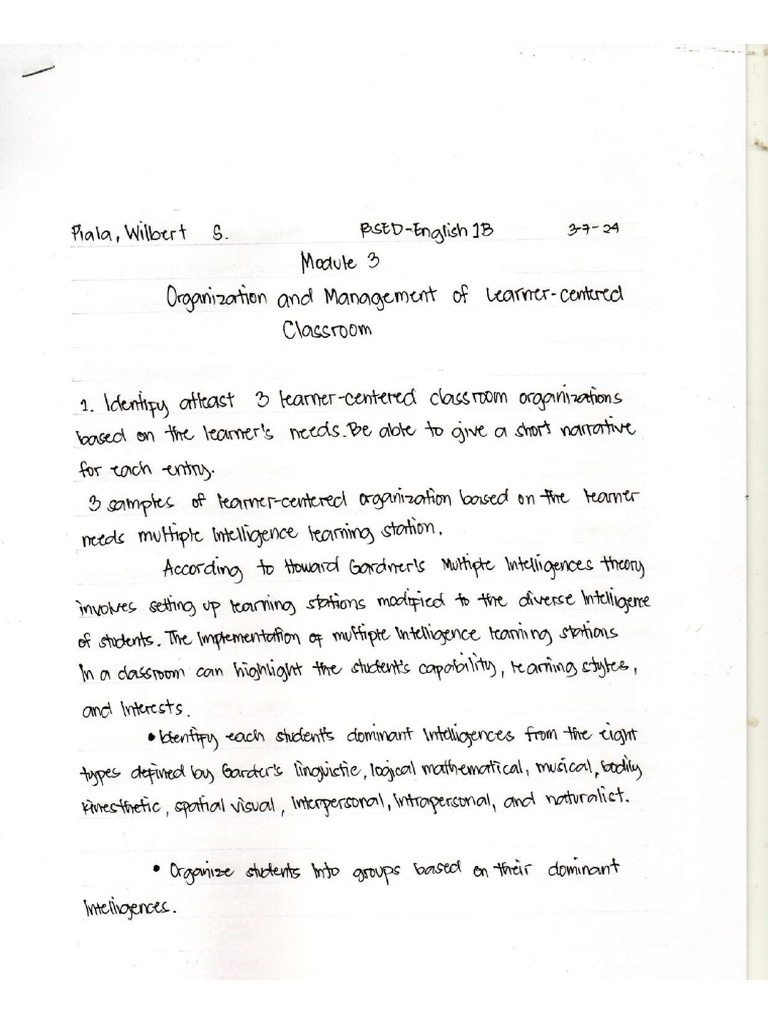 Piala, Wilbert S. BSED-English 1B 3-7-24
Module 3
Organization and Management of Learner-centered
Classroom
1. Identify atleast 3 learner-centered classroom organizations
based on the learner's needs. Be able to give a short narrative
for each entry.
3 samples of learner-centered organization based on the learner
needs multiple Intelligence learning station.
According to Howard Gardner's Multiple Intelligences theory
involves setting up learning stations modified to the diverse Intelligence
of students. The Implementation of multiple Intelligence learning stations
In a classroom can highlight the student's capability, learning styles,
and Interests.
• Identify each student's dominant Intelligences from the eight
types defined by Garder's linguistic, logical mathematical, musical, bodily
kinesthetic, spatial visual, Interpersonal, Intrapersonal, and naturalist.
• Organize students Into groups based on their dominant
Intelligences.